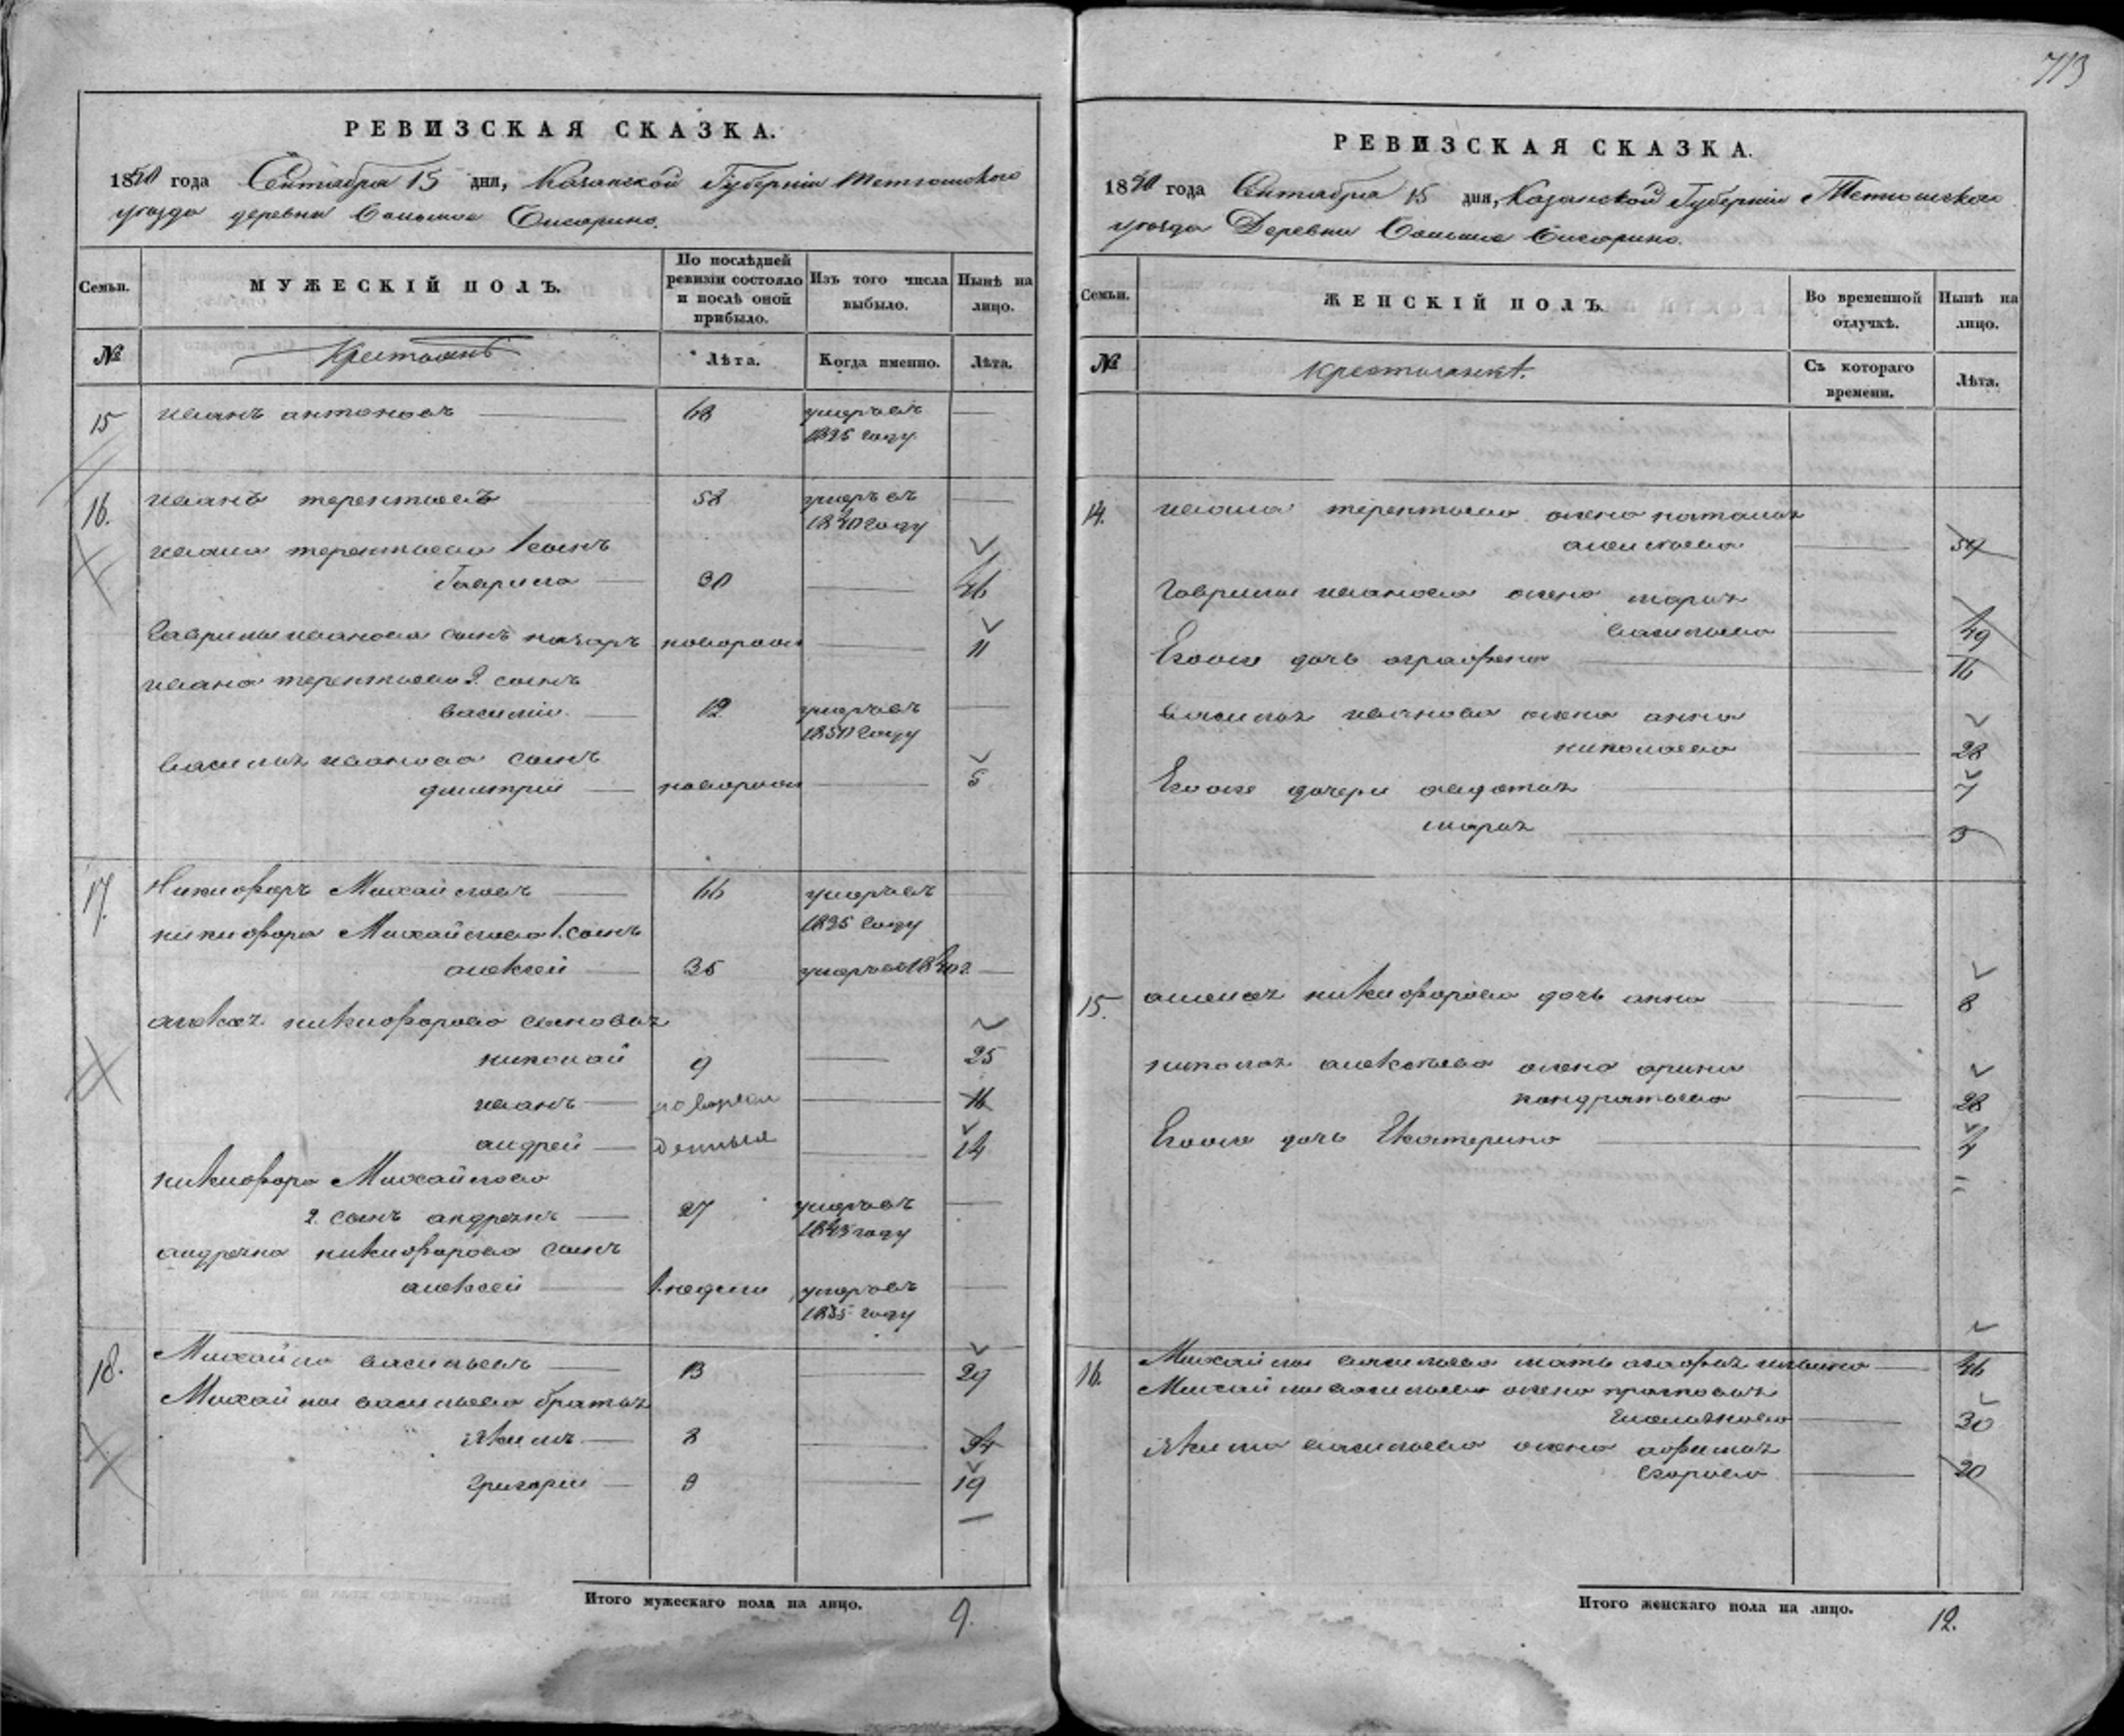 713
РЕВИЗСКАЯ СКАЗКА.
1850 года Сентября 15 дня, Казанской Губернии Тетюшскаго
уезда деревни
Семьи.
МУЖЕСКІЙ ПОЛЪ.
По послѣдней ревизіи состояло и послѣ оной прибыло.
Изъ того числа выбыло.
Нынѣ на лицо.
№
Крестьянъ
Лѣта.
Когда именно.
Лѣта.
15 иванъ антоновъ 68 умеръ въ
1835 году
16. иванъ терентьевъ 58 умеръ въ
1840 году
ивана терентьева 1 сынъ
гаврила 30 46
гаврилы иванова сынъ назаръ новорож 11
ивана терентьева 2. сынъ
василій 12 умеръ въ
1850 году
василья иванова сынъ
дмитрій новорож 5
17. Никифоръ Михайловъ 66 умеръ въ
1835 году
никифора Михайлова 1. сынъ
алексей 35 умеръ въ 1840 г.
алексея никифорова сыновья
николай 9 25
иванъ новорож 16
андрей денные 14
никифора Михайлова
2. сынъ андреянъ 27 умеръ въ
1843 году
андреяна никифорова сынъ
алексей 1. недели умеръ въ
1835 году
18. Михайла васильевъ 13 29
Михайлы васильева братья
якимъ 8 24
григорій 3 19
Итого мужескаго пола на лицо. 9.
РЕВИЗСКАЯ СКАЗКА.
1850 года Сентября 15 дня, Казанской Губернии Тетюшскаго
уезда Деревни
Семьи.
ЖЕНСКІЙ ПОЛЪ.
Во временной отлучкѣ.
Нынѣ на лицо.
№
крестьянскѣ.
Съ котораго времени.
Лѣта.
14. ивана терентьева жена наталья
алексеева 59
гаврилы иванова жена марья
васильева 49
Ево же дочь аграфена 16
василья иванова жена анна
николаева 28
Ево же дочери авдотья 7
марья 3
15. алексея никифорова дочь анна 8
николая алексеева жена арина
кондратьева 28
Ево же дочь Екатерина 4
16. Михайлы васильева мать агафья ильина 46
Михайлы васильева жена прасковья
30
якима васильева жена афимья
егорова 20
Итого женскаго пола на лицо. 12.